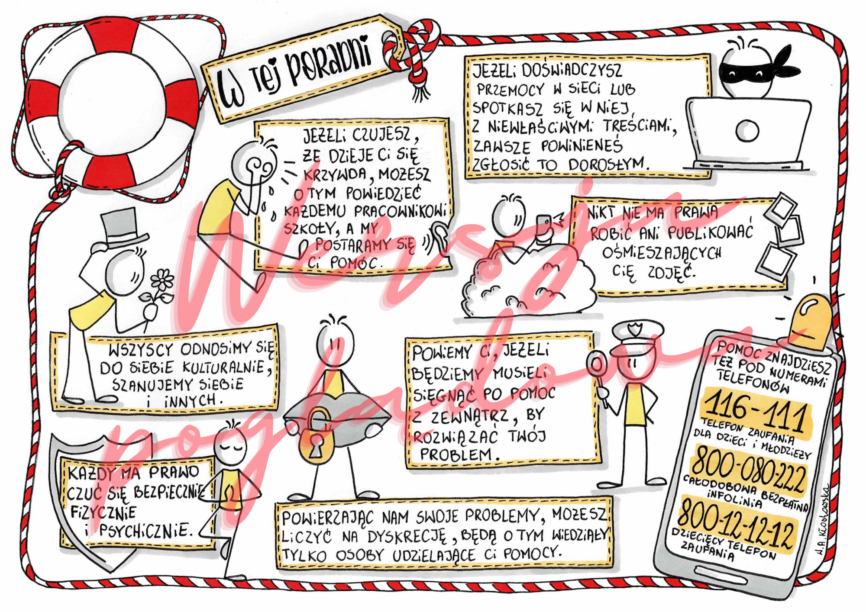 W TEJ PORADNI
JEŻELI CZUJESZ,
ŻE DZIEJE CI SIĘ
KRZYWDA, MOŻESZ
O TYM POWIEDZIEĆ
KAŻDEMU PRACOWNIKOWI
SZKOŁY, A MY
POSTARAMY SIĘ
CI POMÓC.
JEŻELI DOŚWIADCZYSZ
PRZEMOCY W SIECI LUB
SPOTKASZ SIĘ W NIEJ,
Z NIEWŁAŚCIWYMI TREŚCIAMI,
ZAWSZE POWINIENEŚ
ZGŁOSIĆ TO DOROSŁYM.
NIKT NIE MA PRAWA
ROBIĆ ANI PUBLIKOWAĆ
OŚMIESZAJĄCYCH
CIĘ ZDJĘĆ.
WSZYSCY ODNOSIMY SIĘ
DO SIEBIE KULTURALNIE,
SZANUJEMY SIEBIE
I INNYCH.
POWIEMY CI, JEŻELI
BĘDZIEMY MUSIELI
SIĘGNĄĆ PO POMOC
Z ZEWNĄTRZ, BY
ROZWIĄZAĆ TWÓJ
PROBLEM.
KAŻDY MA PRAWO
CZUĆ SIĘ BEZPIECZNIE
FIZYCZNIE
I PSYCHICZNIE.
POWIERZAJĄC NAM SWOJE PROBLEMY, MOŻESZ
LICZYĆ NA DYSKRECJĘ, BĘDĄ O TYM WIEDZIAŁY
TYLKO OSOBY UDZIELAJĄCE CI POMOCY.
POMOC ZNAJDZIESZ
TEŻ POD NUMERAMI
TELEFONÓW
116-111
TELEFON ZAUFANIA
DLA DZIECI I MŁODZIEŻY
800-080-222
CAŁODOBOWA BEZPŁATNA
INFOLINIA
800-12-12-12
DZIECIĘCY TELEFON
ZAUFANIA
Wersja
poglądowa